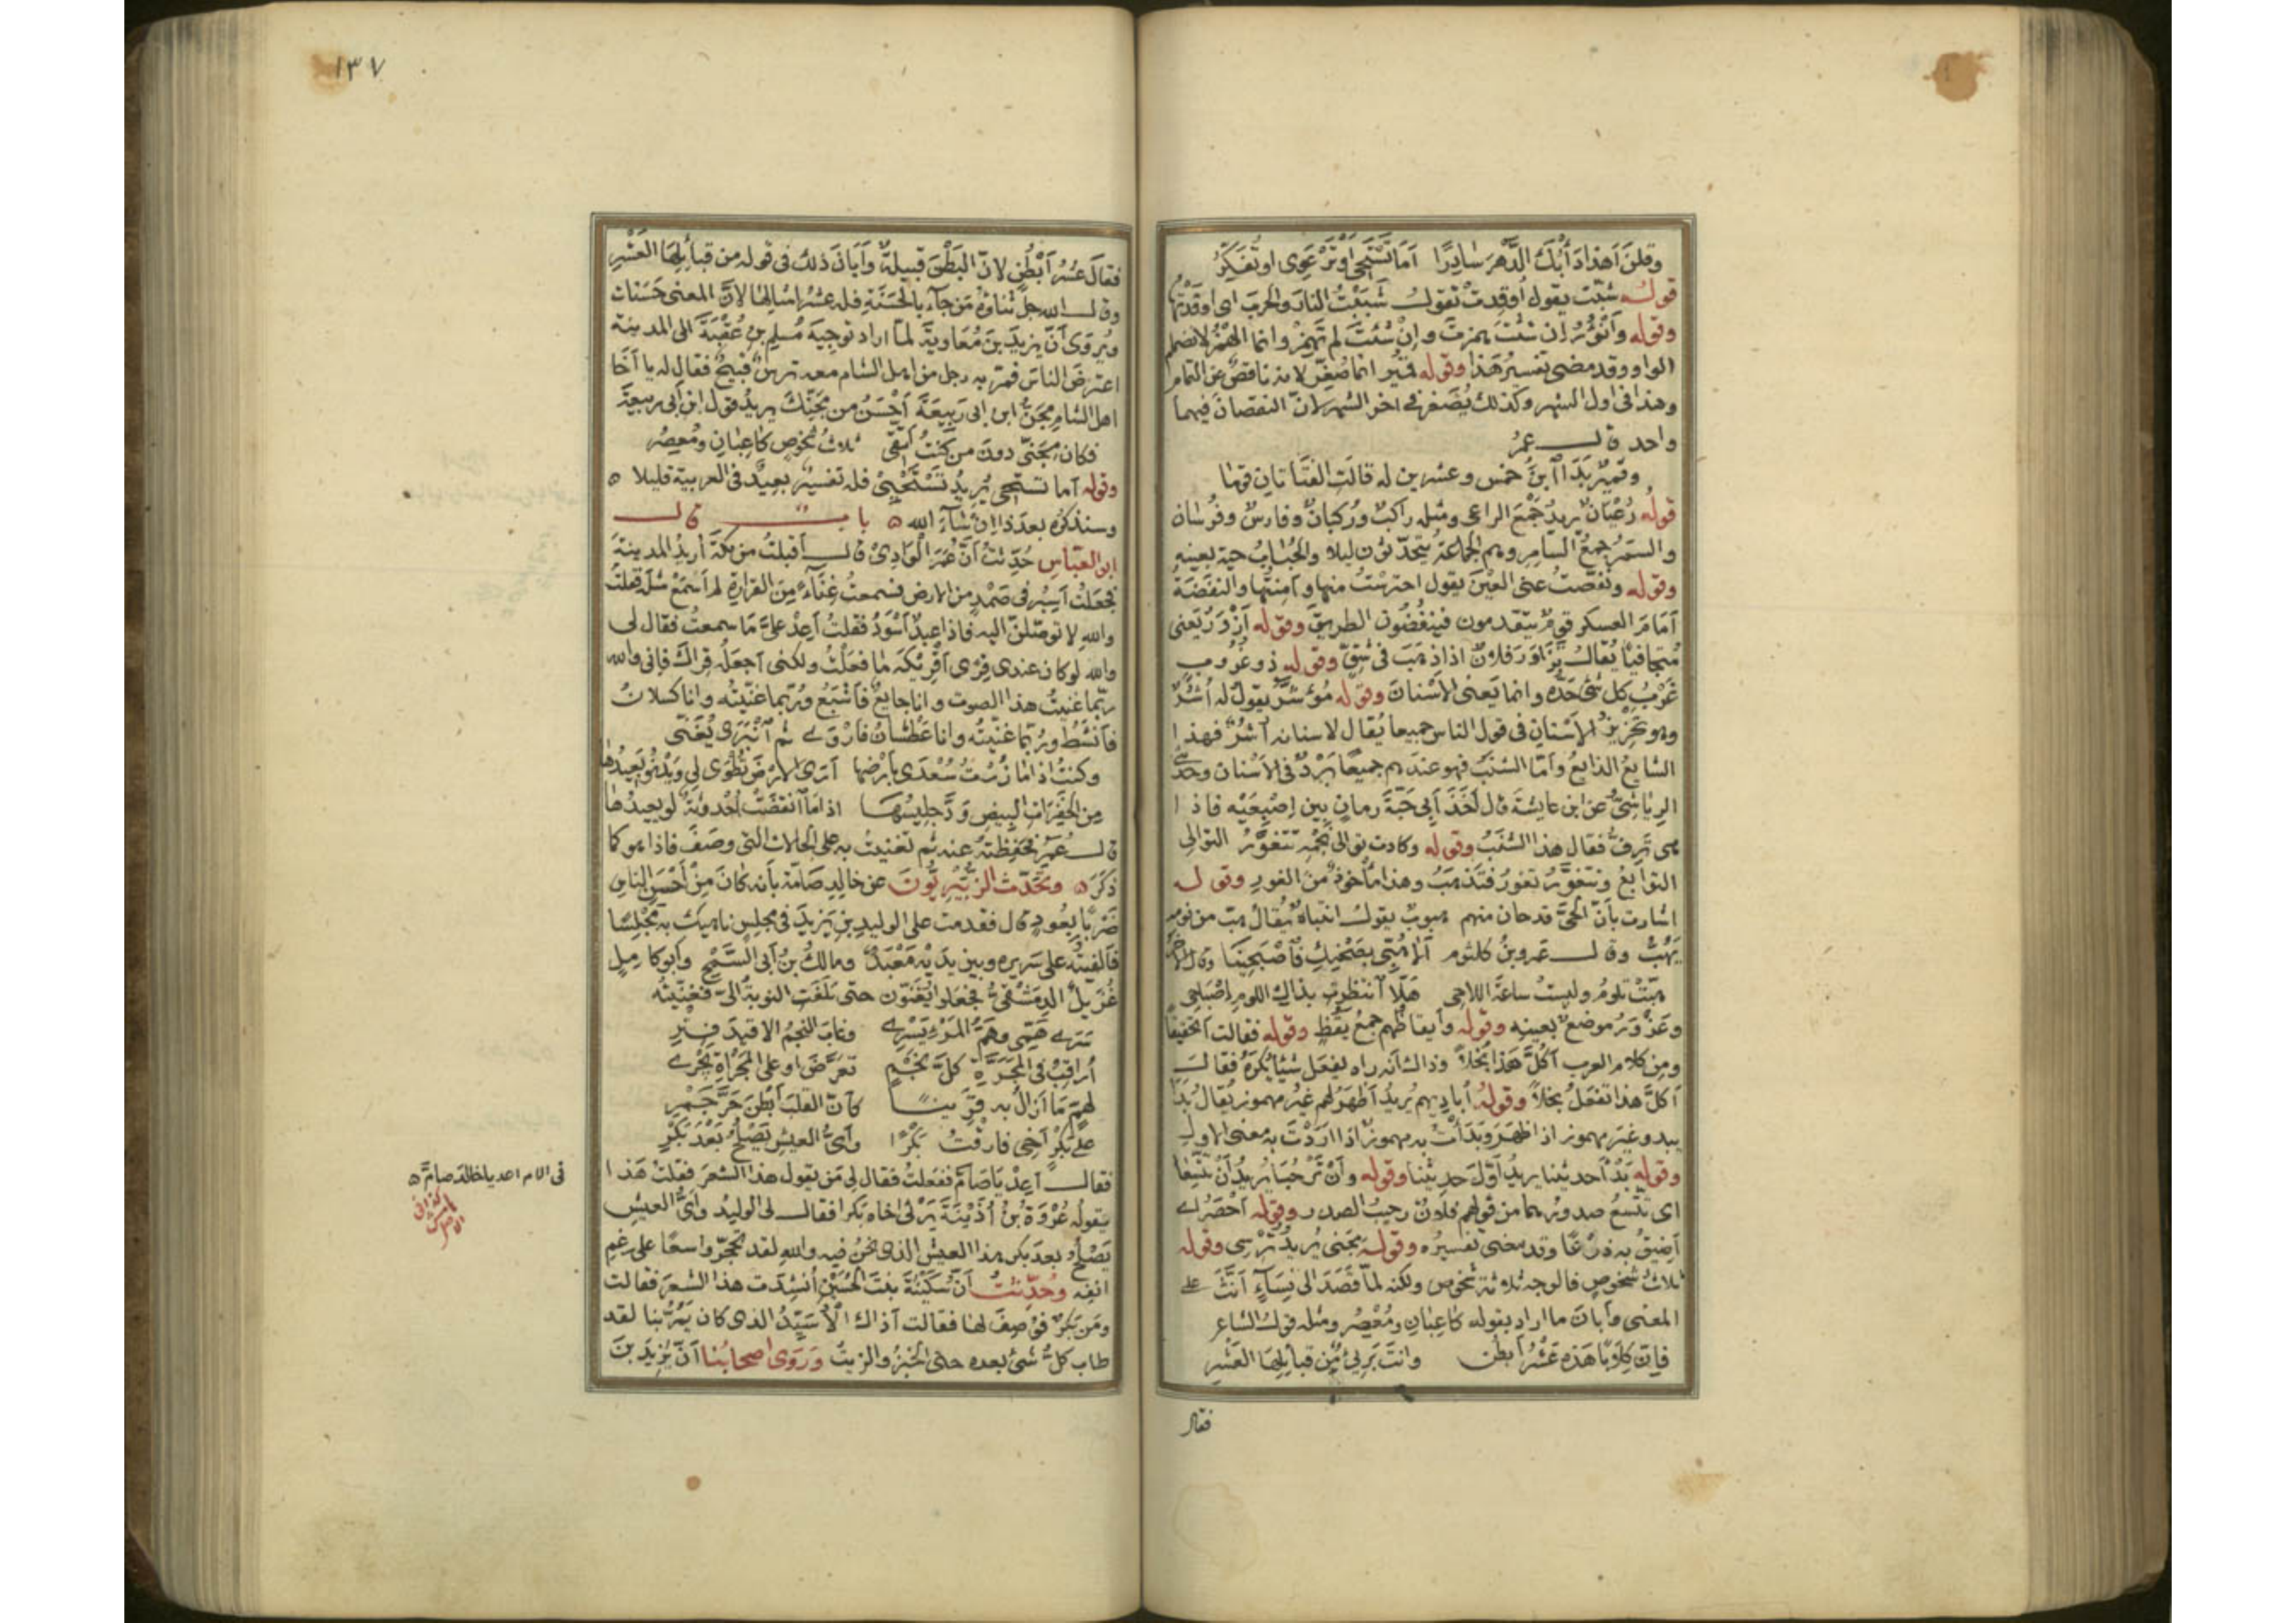 وقلن أهذا دأبك الدهر سادرا أما تستحي أو ترعوي أو تفكر
قوله شبت يقول أوقدت تقول شببت النار والحرب اى اوقدتها
وقوله وأنؤر إن شئت همزت وإن شئت لم تهمز وانما الهمز لانضمام
الواو وقد مضى تفسير هذا وقوله قمير انما صغر لانه ناقص عن التمام
وهذا فى اول الشهر وكذلك يصغر فے اخر الشهر لان النقصان فيهما
واحد قال عمر
وقمير بدا ابن خمس وعشرين له قالت الفتاتان قوما
قوله رعيان يريد جمع الراعى ومثله راكب وركبان وفارس وفرسان
والسمر جمع السامر وهم الجماعة يتحدثون ليلا والحباب حية بعينه
وقوله ونفضت عنى العين يقول احترست منها وأمنتها والنفضة
أمام العسكر قوم يتقدمون فينفضون الطريق وقوله أزور يعنى
متجافيا يقال تزاور فلان اذا ذهب فى شق وقوله ذو غروب
غرب كل شئ حده وانما يعنى الاسنان وقوله مؤشر يقول له أشر
وهو تحزيز الاسنان فى قول الناس جميعا يقال لاسنانه أشر فهذا
الشايع الذايع وأما الشنب فهو عندهم جميعا برد فى الاسنان وحدثنے
الرياشى عن ابن عايشة قال أخذ أبى حبة رمان بين إصبعيه فاذا
هى ترف فقال هذا الشنب وقوله وكادت توالى نجمه تتغور التوالى
التوابع وتتغور تغور فتذهب وهذا مأخوذ من الغور وقوله
اشارت بأن الحى قد حان منهم هبوب يقول انتباه يقال هب من نومه
يهب وقال عمرو بن كلثوم ألا هبى بصحنك فاصبحينا وقال الاخر
هبت تلوم وليست ساعة اللاحى هلا انتظرت بذاك اللوم إصباحى
وعزور موضع بعينه وقوله وأيقاظهم جمع يقظ وقوله فقالت أتحقيقا
ومن كلام العرب أكل هذا بخلا وذاك انه راه يفعل شيئا يكره فقال
أكل هذا تفعل بخلا وقوله أباديهم يريد أظهر لهم غير مهموز يقال بدا
يبدو غير مهموز اذا ظهر وبدأت به مهموز اذا اردت به معنى الاول
وقوله بدأ حديثنا يريد أول حديثنا وقوله وأن ترحبا يريد أن تتسعا
اى تتسع صدورهما من قولهم فلان رحيب الصدر وقوله أحصر اے
أضيق به ذرعا وقد مضى تفسيره وقوله مجنى يريد ترسى وقوله
ثلاث شخوص فالوجه ثلاثة شخوص ولكنه لما قصد الى نساء أنث على
المعنى وأبان ما اراد بقوله كاعبان ومعصر ومثله قول الشاعر
فإن كلابا هذه عشر أبطن وانت برىء من قبايلها العشر
فقال
١٣٧
فقال عشر أبطن لان البطن قبيلة وأبان ذلك فى قوله من قبائلها العشر
وقال الله جل ثناؤه من جاء بالحسنة فله عشر امثالها لان المعنى حسنات
ويروى أن يزيد بن معاوية لما اراد توجيه مسلم بن عقبة الى المدينة
اعترض الناس فمر به رجل من اهل الشام معه ترس قبيح فقال له يا أخا
اهل الشام مجن ابن ابى ربيعة أحسن من مجنك يريد قول ابن أبى ربيعة
فكان مجنى دون من كنت أتقى ثلاث شخوص كاعبان ومعصر
وقوله أما تستحى يريد تستحيى فله تفسير بعيد فى العربية قليلا ه
وسنذكره بعد ذا إن شاء الله ه باب قال
ابو العباس حدثت أن عمر الوادى قال أقبلت من مكة أريد المدينة
فجعلت أسير فى صمد من الارض فسمعت غناء من القرارة لم أسمع مثله فقلت
والله لاتوصلن اليه فاذا عبد أسود فقلت أعد على ما سمعت فقال لى
والله لو كان عندى قرى أقريكه ما فعلت ولكنى أجعله قراك فإنى والله
ربما غنيت هذا الصوت وانا جايع فأشبع وربما غنيته وانا كسلان
فأنشط وربما غنيته وانا عطشان فأروے ثم انبرى يغنى
وكنت اذا ما زرت سعدى بأرضها أرى الارض تطوى لى ويدنو بعيدها
من الخفرات البيض ود جليسها اذا ما انقضت أحدوثة لو يعيدها
قال عمر فحفظته عنه ثم تغنيت به على الحالات التى وصف فاذا هو كما
ذكر ه وتحدث الزبيريون عن خالد صامة بأنه كان من أحسن الناس
ضربا بعود قال فقدمت على الوليد بن يزيد فى مجلس ناهيك به مجلسا
فألفيته على سريره وبين يديه معبد ومالك بن أبى السمح وأبو كامل
غزيل الدمشقى فجعلوا يغنون حتى بلغت النوبة الى فغنيته
سرے همى وهم المرء يسرے وغاب النجم الا قيد فتر
أراقب فى المجرة كل نجم تعرض او على المجراة يجرے
لهم ما أزال به قرينا كأن القلب أبطن حر جمر
على بكر أخى فارقت بكرا وأى العيش يصلح بعد بكر
فقال أعد يا صام ففعلت فقال لى من يقول هذا الشعر فقلت هذا
يقوله عروة بن أذينة يرثى اخاه بكرا فقال لى الوليد وأى العيش
يصلح بعد بكر هذا العيش الذى نحن فيه والله لقد تحجر واسعا على رغم
انفه وحدثت أن سكينة بنت الحسين أنشدت هذا الشعر فقالت
ومن بكر فوصف لها فقالت أذاك الأسيد الذى كان يمر بنا لقد
طاب كل شئ بعده حتى الخبز والزيت وروى اصحابنا أن يزيد بن
فى الام اعد يا خالد صامة ه